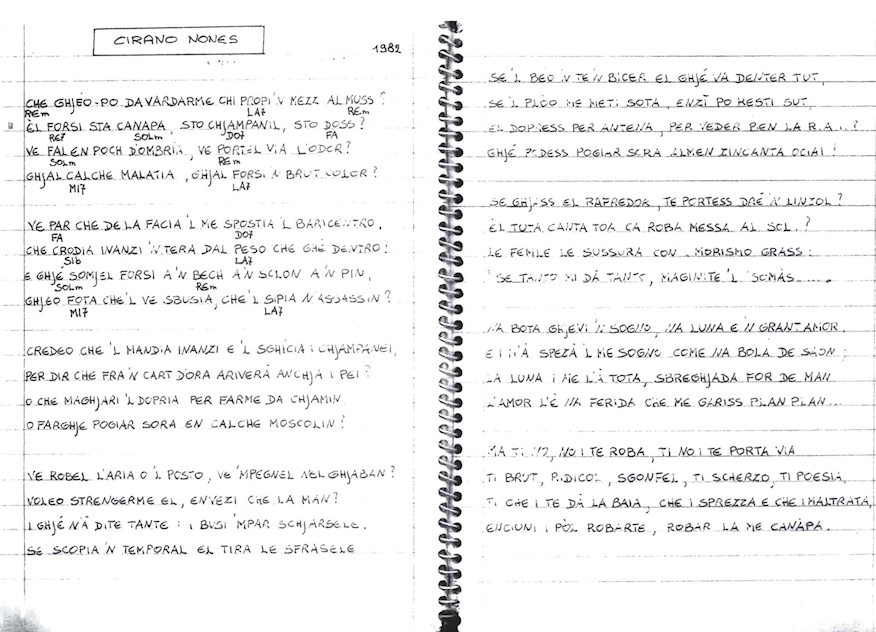 CIRANO NONES
1982
CHE GHJÉO-PO DA VARDARME CHI PROPI 'N MEZZ AL MUSS?
REm LA7 REm
ÈL FORSI STA CANAPA, STO CHJAMPANIL, STO DOSS?
RE7 SOLm DO7 FA
VE FAL EN POCH D'OMBRIA, VE PORTEL VIA L'ODOR?
SOLm REm
GHJAL CALCHE MALATIA, GHJAL FORSI 'N BRUT COLOR?
MI7 LA7
VE PAR CHE DE LA FACIA 'L ME SPOSTIA 'L BARICENTRO,
FA DO7
CHE CRODIA INANZI 'N TERA DAL PESO CHE GHÈ DENTRO!
SIb LA7
E GHJÉ SOMJEL FORSI A 'N BECH A 'N A 'N PIN,
SOLm REm
GHJEO FOTA CHE 'L VE SBUSIA, CHE 'L SIPIA N ASSASSIN?
MI7 LA7
CREDEO CHE 'L MANDIA INANZI E 'L SGHICIA I CHJAMPANEI,
PER DIR CHE FRA 'N CART D'ORA ARIVERÀ ANCHJA I PEI?
O CHE MAGHJARI 'L DOPRIA PER FARME DA CHJAMIN
O FARGHJE POGIAR SORA EN CALCHE MOSCOLIN!
VE ROBEL L'ARIA O 'L POSTO, VE 'MPEGNEL NEL GHJABAN?
VOLEO STRENGERME EL, ENVEZI CHE LA MAN?
I GHJÉ N'À DITE TANTE: I BUSI 'MPAR SCHJARSELE.
SE SCOPIA 'N TEMPORAL EL TIRA LE SFRASELE
SE 'L BEO 'N TE 'N BICER EL GHJÉ VÀ DENTER TUT,
SE 'L PLÒO ME METI SOTA, ENZÌ PO RESTI SUT,
EL DOPRESS PER ANTENA, PER VEDER BEN LA R.A.I.?
GHJÉ PODESS POGIAR SORA ALMEN ZINCANTA OCIAI!
SE GHJASS EL RAFREDOR, TE PORTESS DRÉ 'N LINZOL?
ÈL TUTA CANTA TOA CA ROBA MESSA AL SOL?
LE FEMILE LE SUSSURA CON MORISMO GRASS:
"SE TANTO MI DÀ TANTO, MAGINITE 'L SOMÀS.....
NA BOTA GHJEVI 'N SOGNO, NA LUNA E 'N GRANT AMOR,
E I M'À SPEZÀ 'L ME SOGNO COME NA BOLA DE SAON:
LA LUNA I ME L'À TOTA, SBREGHJADA FOR DE MAN
L'AMOR L'È NA FERIDA CHE ME GARISS PLAN PLAN...
MA TI NO, NO I TE ROBA, TI NO I TE PORTA VIA
TI BRUT, RIDICOL, SGONFEL, TI SCHERZO, TI POESIA,
TI CHE I TE DÀ LA BAIA, CHE I SPREZZA E CHE I MALTRATA,
ENCIUNI I PÒL ROBARTE, ROBAR LA ME CANÀPA.